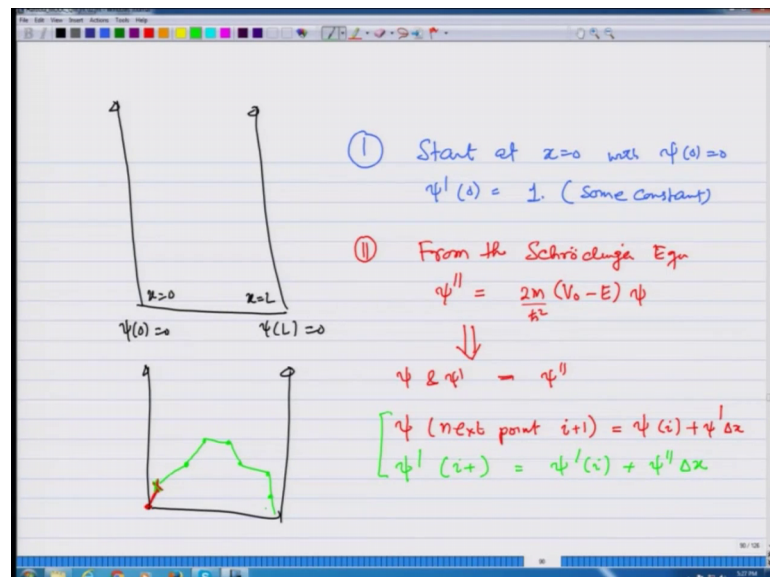 File Edit View Insert Actions Tools Help
x=0
x=L
ψ(0)=0
ψ(L)=0
I Start at x=0 with ψ(0)=0
ψ'(0) = 1. (Some constant)
II From the Schrödinger Equ
ψ'' = 2m/ħ² (V₀-E) ψ
⇓
ψ & ψ' - ψ''
ψ (next point i+1) = ψ(i) + ψ'Δx
ψ' (i+) = ψ'(i) + ψ''Δx
90 / 126
90
5:27 PM